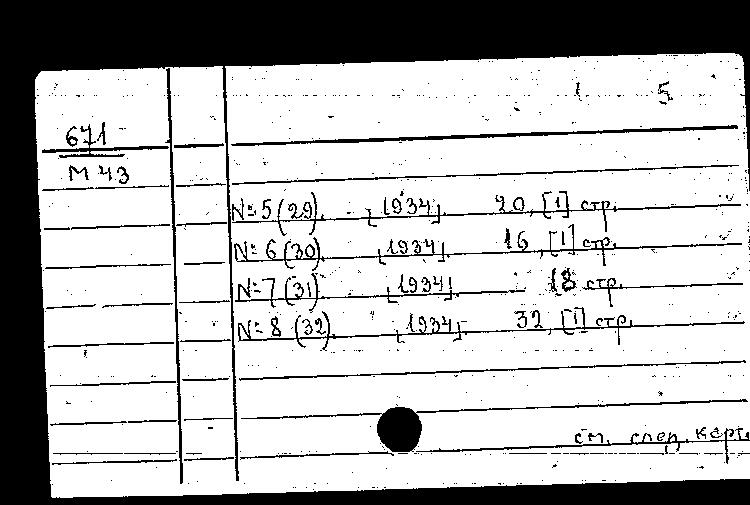 5
671
М 43
№ 5 (29). [1934]. 20, [1] стр.
№ 6 (30). [1934]. 16, [1] стр.
№ 7 (31) [1934]. 18 стр.
№ 8 (32). [1934]. 32, [1] стр.
см. след. карт.